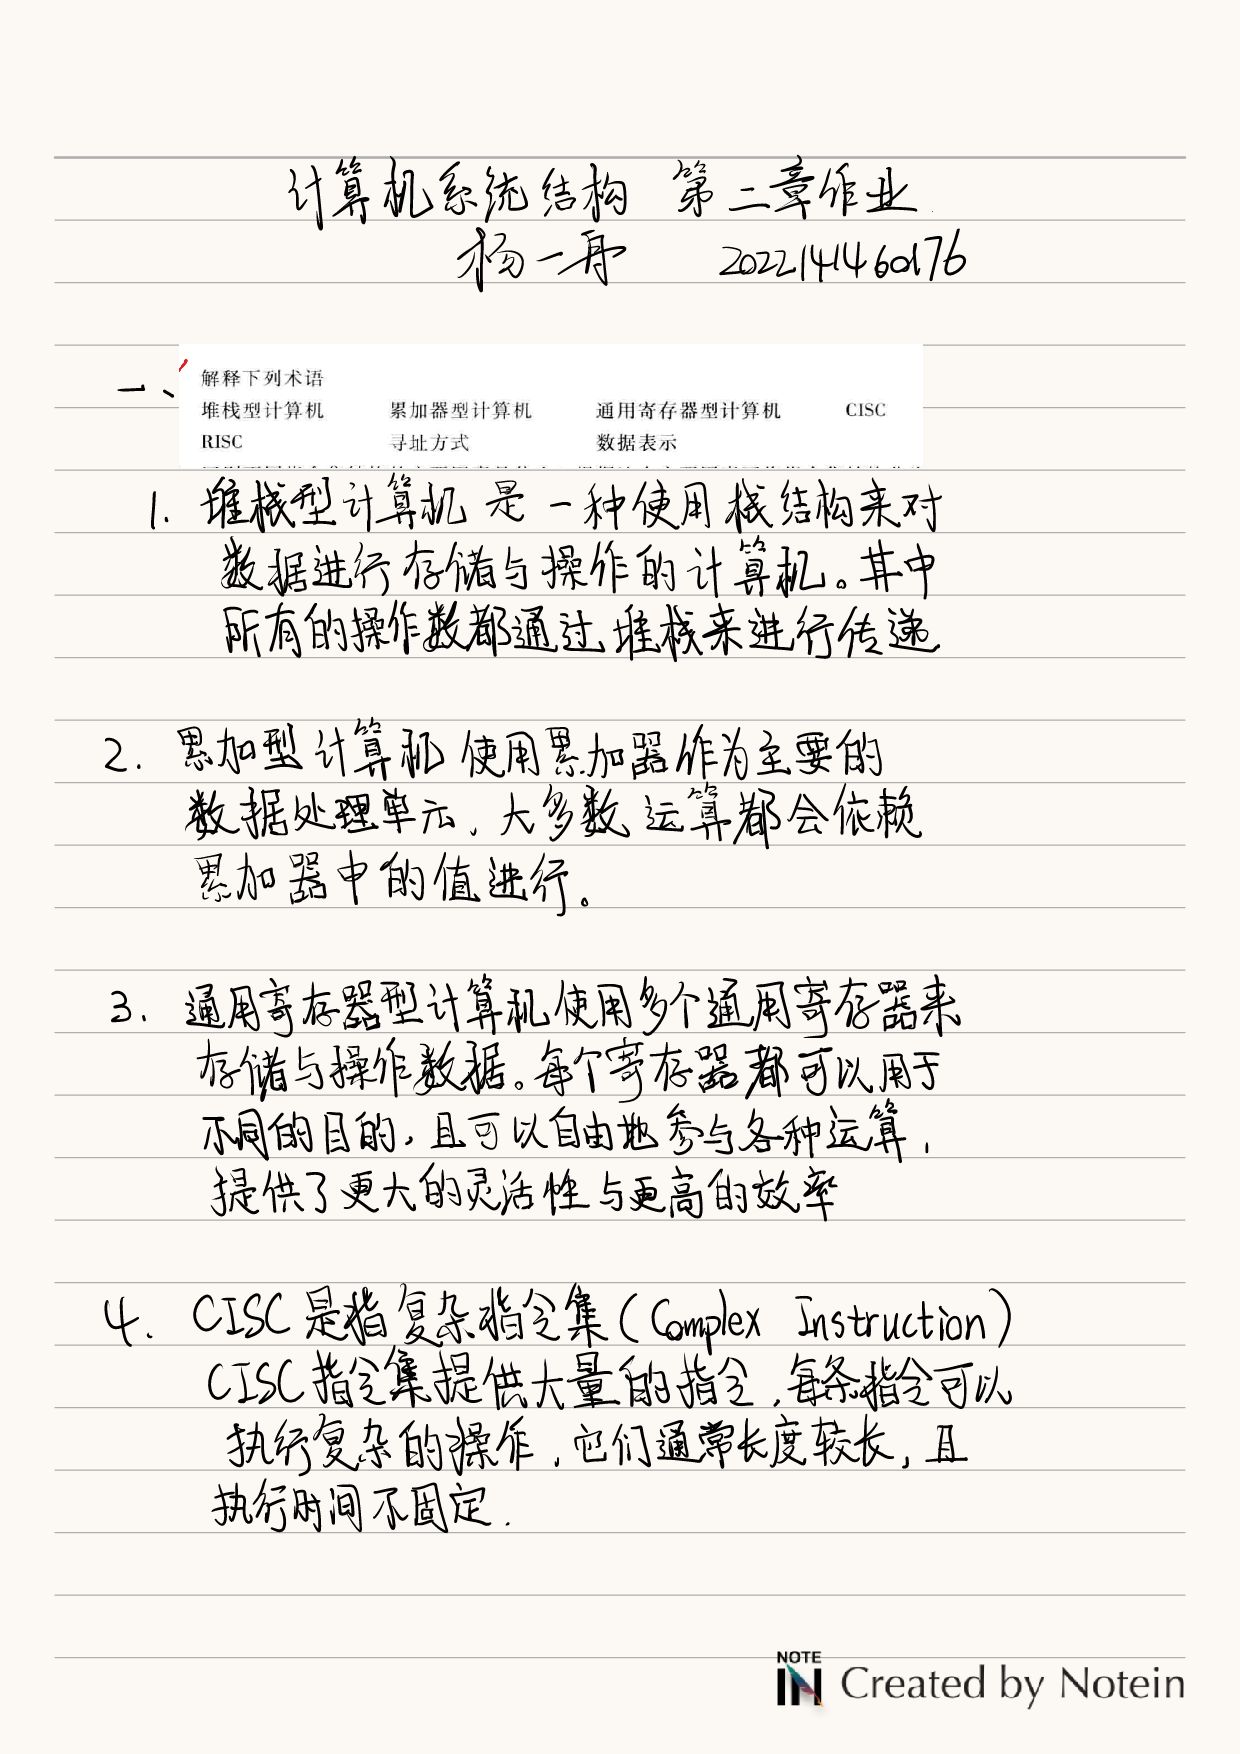 计算机系统结构 第二章作业
杨一舟 2022141460176
一、
解释下列术语
堆栈型计算机 累加器型计算机 通用寄存器型计算机 CISC
RISC 寻址方式 数据表示
1. 堆栈型计算机 是一种使用栈结构来对
数据进行存储与操作的计算机。其中
所有的操作数都通过堆栈来进行传递
2. 累加型计算机 使用累加器作为主要的
数据处理单元，大多数运算都会依赖
累加器中的值进行。
3. 通用寄存器型计算机使用多个通用寄存器来
存储与操作数据。每个寄存器都可以用于
不同的目的，且可以自由地参与各种运算，
提供了更大的灵活性与更高的效率
4. CISC是指复杂指令集(Complex Instruction)
CISC指令集提供大量的指令，每条指令可以
执行复杂的操作，它们通常长度较长，且
执行时间不固定.
NOTE
IN Created by Notein